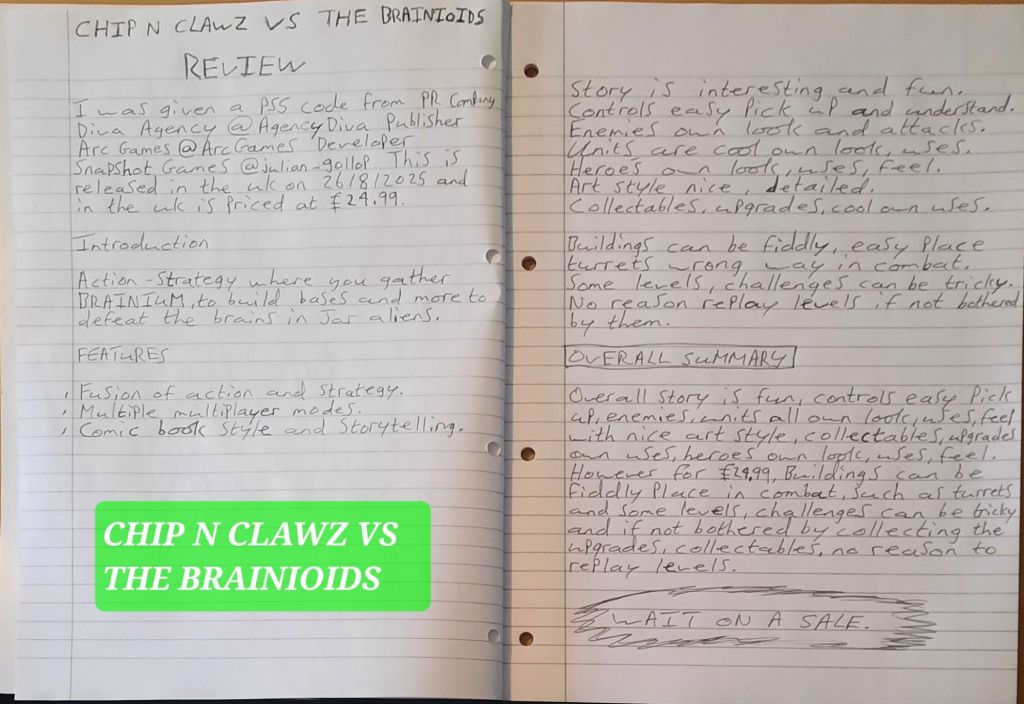 CHIP N CLAWZ VS THE BRAINIOIDS
REVIEW
I was given a PS5 code from PR Company
Diva Agency @AgencyDiva Publisher
Arc Games @ArcGames Developer
Snapshot Games @julian_gollop This is
released in the uk on 26/8/2025 and
in the uk is Priced at £24.99.
Introduction
Action-Strategy where you gather
BRAINIUM, to build bases and more to
defeat the brains in Jar aliens.
FEATURES
Fusion of action and strategy.
Multiple multiplayer modes.
Comic book style and Storytelling.
CHIP N CLAWZ VS
THE BRAINIOIDS
Story is interesting and fun.
Controls easy Pick up and understand.
Enemies own look and attacks.
Units are cool own look, uses.
Heroe's own look, uses, feel.
Art style nice, detailed.
Collectables, upgrades, cool own uses.
Buildings can be fiddly, easy Place
turrets wrong way in combat.
Some levels, challenges can be tricky.
No reason replay levels if not bothered
by them.
OVERALL SUMMARY
Overall story is fun, controls easy Pick
up, enemies, units all own look, uses, feel
with nice art style, collectables, upgrades
own uses, heroes own look, uses, feel.
However for £24.99, Buildings can be
fiddly Place in combat, such as turrets
and some levels, challenges can be tricky
and if not bothered by collecting the
upgrades, collectables, no reason to
replay levels.
WAIT ON A SALE.